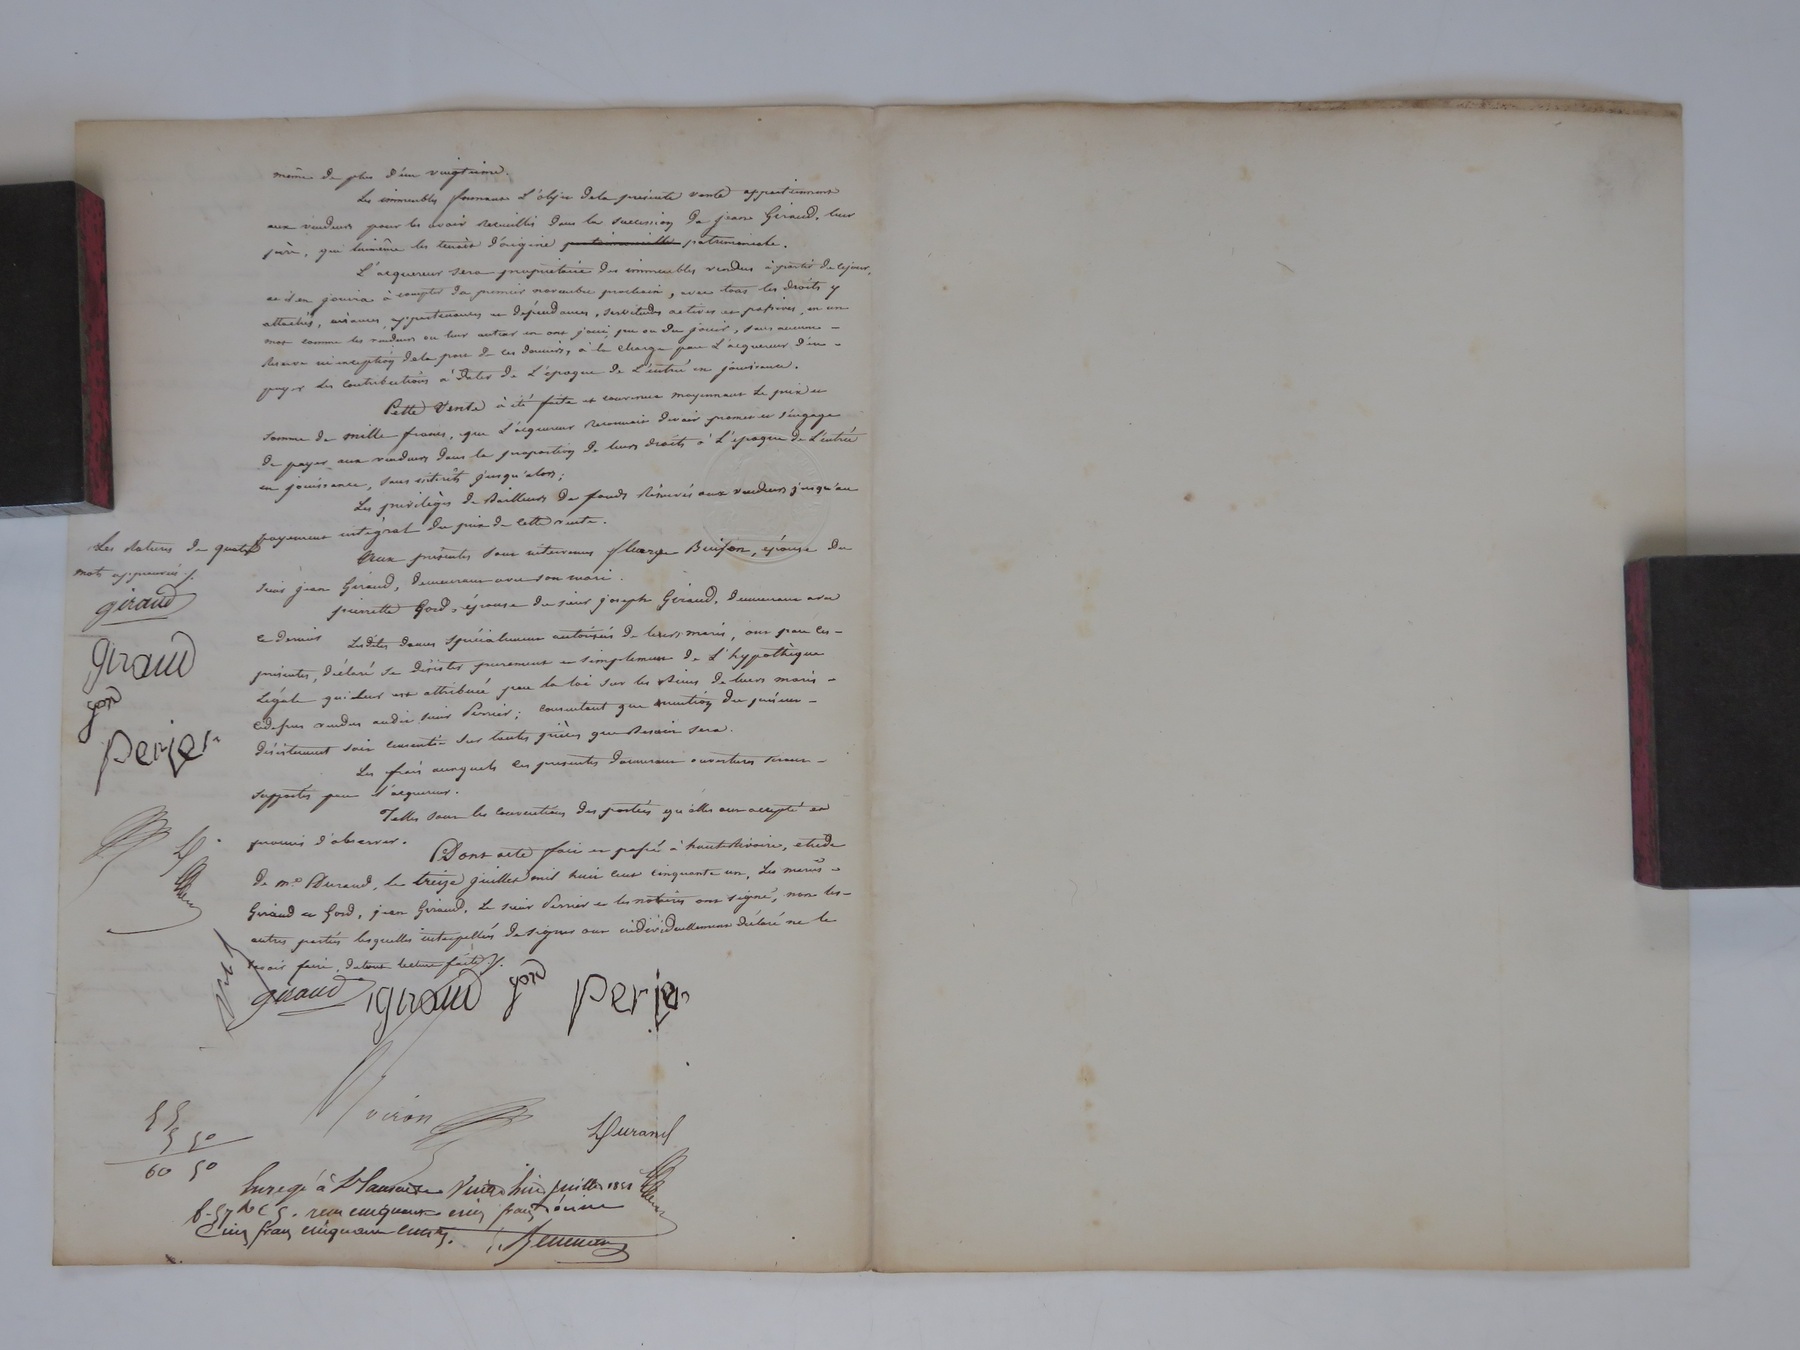 même de plus d'un vingtième.
Les immeubles formant l'objet de la présente vente appartiennent
aux vendeurs pour les avoir recueillis dans la succession de jean Giraud, leur
père, qui lui même les tenait d'origine patrimoniale.
L'acquereur sera propriétaire des immeubles vendus à partir de ce jour,
et il en jouira à compter du premier novembre prochain, avec tous les droits y
attachés, aisances, appartenances et dépendances, servitudes actives et passives, en un
mot comme les vendeurs ou leur auteur en ont joui, pu ou du jouir, sans aucune
réserve ni exception de la part de ces derniers, à la charge par l'acquereur d'en
payer les contributions à dater de l'époque de l'entrée en jouissance.
Cette vente a été faite et convenue moyennant le prix et
somme de mille francs, que l'acquereur reconnait devoir promet et s'engage
de payer aux vendeurs dans la proportion de leurs droits à l'époque de l'entrée
en jouissance, sans intérêts jusqu'alors;
Les privilèges de Bailleurs de fonds réservés aux vendeurs jusqu'au
payement intégral du prix de cette vente.
Aux présentes sont intervenues Buisson, épouse du
sieur jean Giraud, demeurant avec son mari.
pierrette Gord, épouse du sieur joseph Giraud, demeurant avec
ce dernier
Lesdites dames spécialement autorisées de leurs maris, ont par ces
présentes, déclaré se désister purement et simplement de l'hypothèque
légale qui leur est attribuée par la loi sur les Biens de leurs maris
cidessus vendus audit sieur Perrier; consentant que mention du présent
désistement soit consentie sur toutes pièces que Besoin sera.
Les frais auxquels ces présentes donneront ouverture seront
supportés par l'acquereur.
Telles sont les conventions des parties qu'elles ont accepté et
promis d'observer.
Dont acte fait et passé à hauterivoire, etude
de me Durand, le treize juillet mil huit cent cinquante un, Les mariés
Giraud et Gord, jean Giraud, Le sieur Perrier et les notaires ont signé, non les
autres parties lesquelles interpellées de signer ont individuellement déclaré ne le
savoir faire, de tout lecture faite.
Les ratures de quatre
mots approuvées.
giraud
giraud
gord
perier
giraud giraud gord perier
Voiron
Durand
55
5 50
60 50
Enregé à St Laurent Vingt huit juillet 1851
f. 57 Vo C 5. reçu cinquante cinq francs décime
Cinq francs cinquante cent.